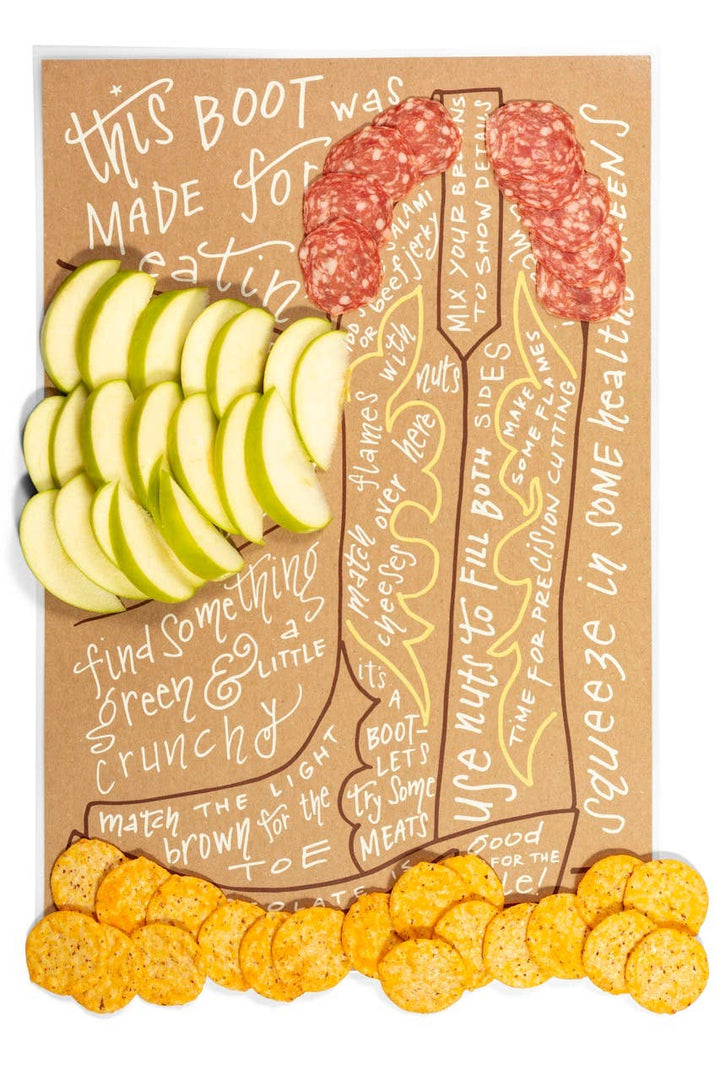 this BOOT was
MADE for
eatin
SALAMI
OR beef jerky
MIX YOUR BRAINS
TO SHOW DETAILS
match flames with nuts
cheeses over here
USE NUTS to FILL BOTH SIDES
MAKE
SOME FLAMES
TIME FOR PRECISION CUTTING
squeeze in SOME healthy GREENS
find something
green & a LITTLE
crunchy
it's
A
BOOT-
LETS
try Some
MEATS
match THE LIGHT
brown for the
TOE
IS
Good
FOR THE